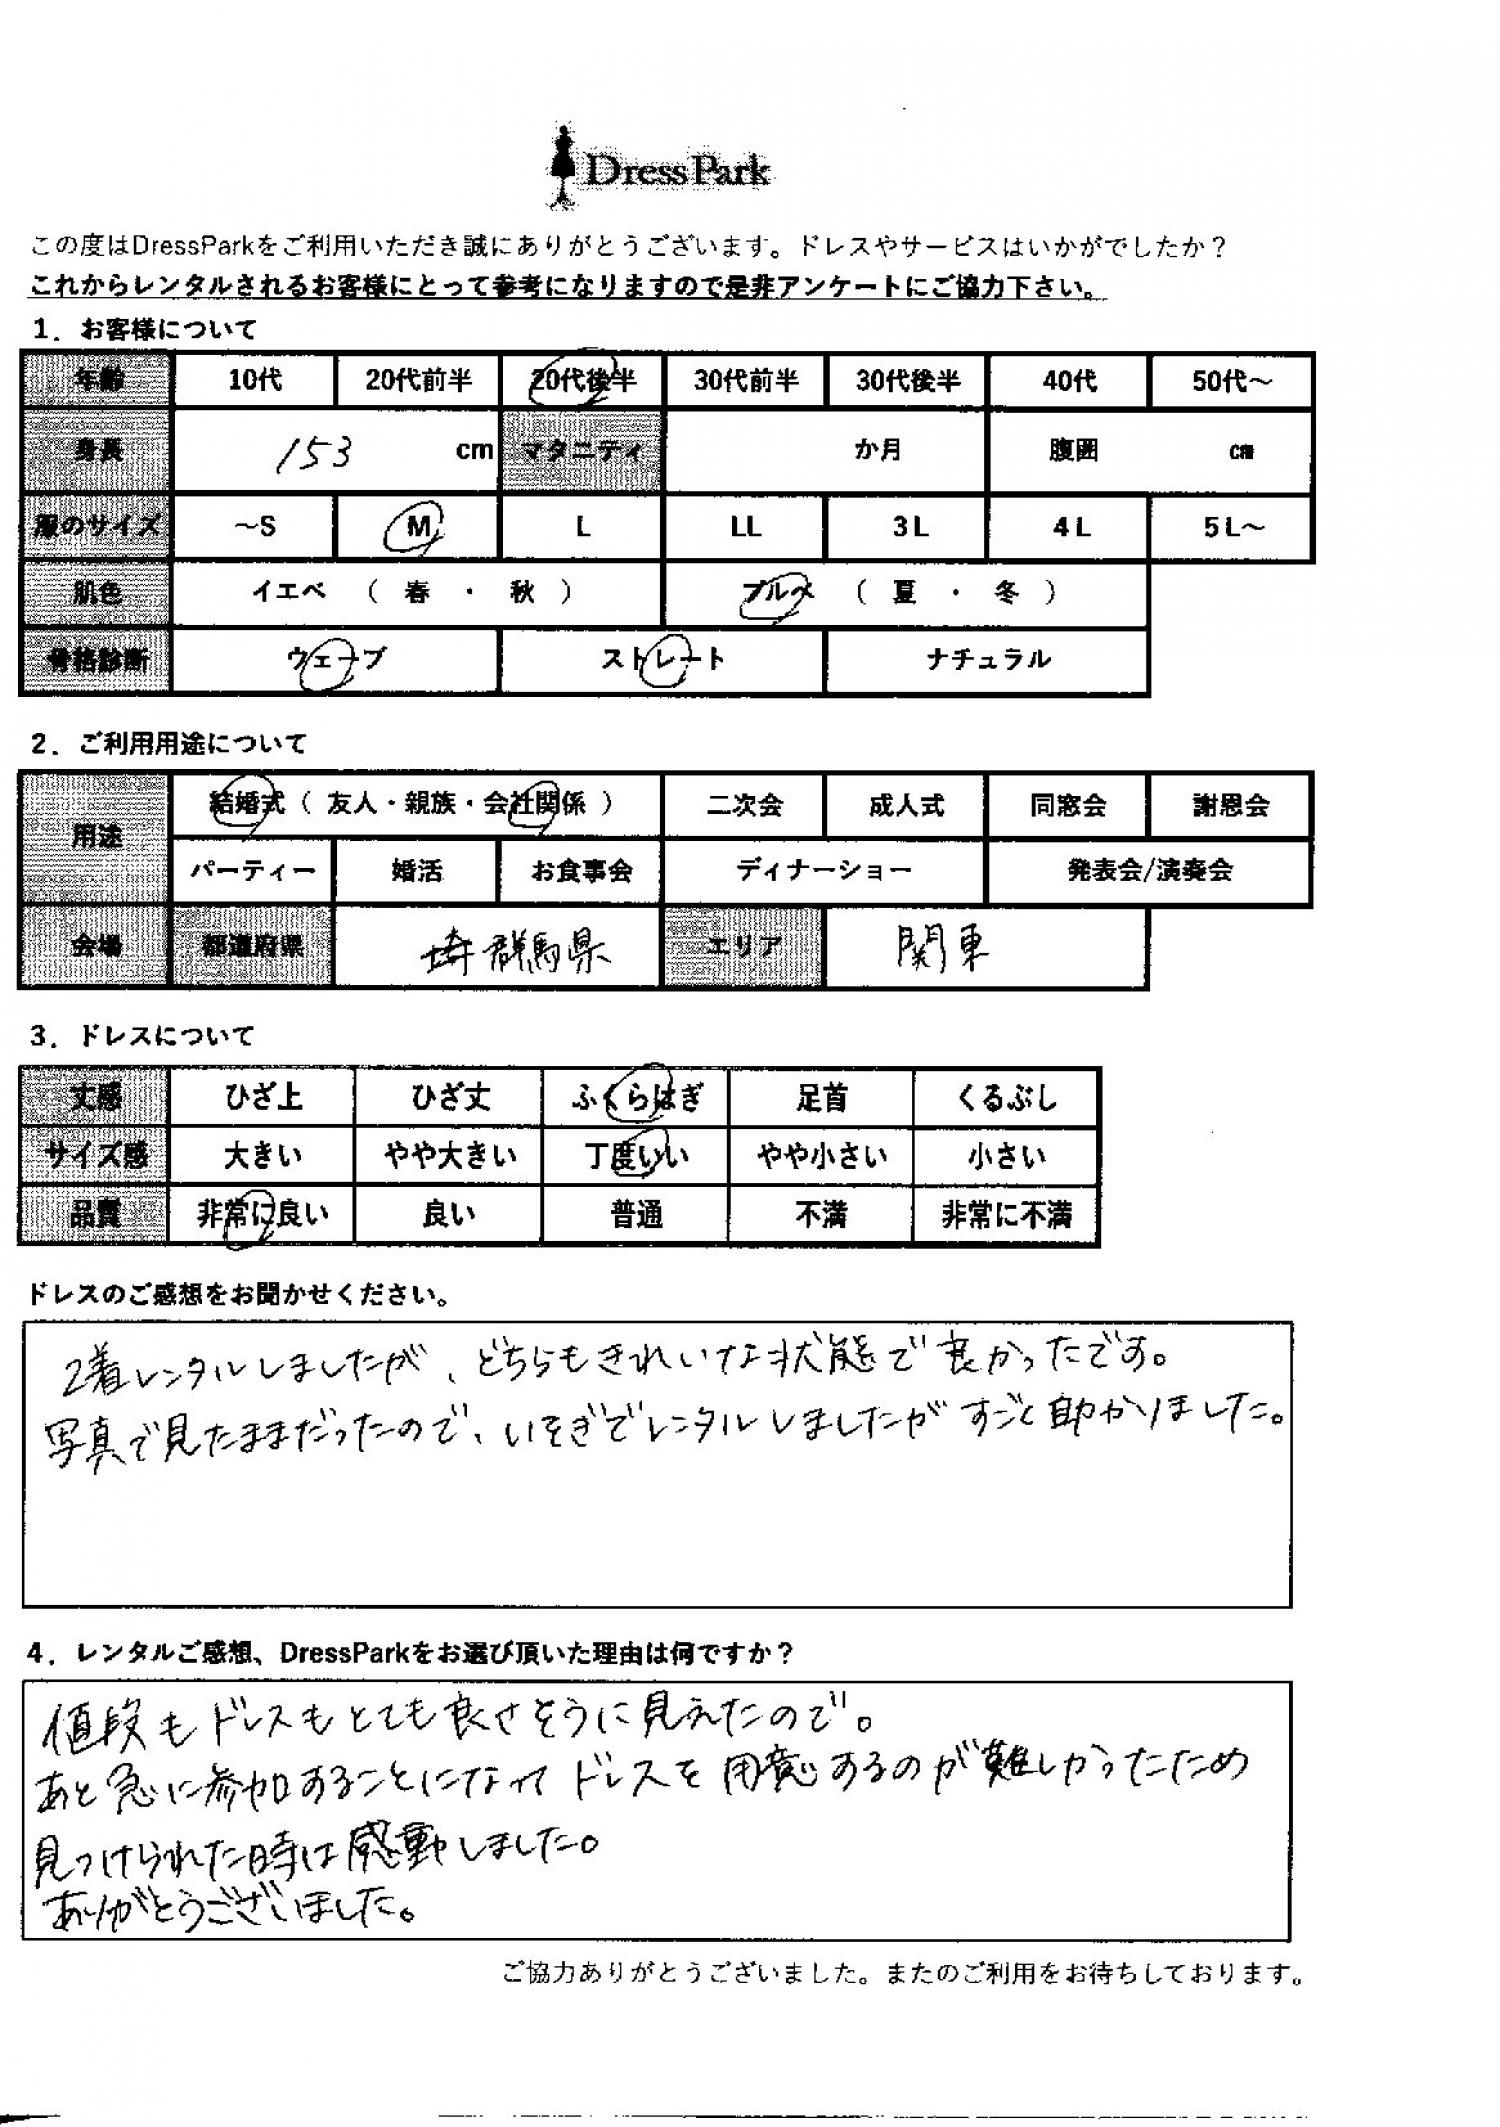 DressPark
この度はDressParkをご利用いただき誠にありがとうございます。ドレスやサービスはいかがでしたか？
これからレンタルされるお客様にとって参考になりますので是非アンケートにご協力下さい。
1．お客様について
年齢 10代 20代前半 20代後半 30代前半 30代後半 40代 50代～
身長 153 cm マタニティ か月 腹囲 cm
服のサイズ ～S M L LL 3L 4L 5L～
肌色 イエベ （ 春 ・ 秋 ） ブルベ （ 夏 ・ 冬 ）
骨格診断 ウェーブ ストレート ナチュラル
2．ご利用用途について
用途 結婚式（ 友人・親族・会社関係 ） 二次会 成人式 同窓会 謝恩会
パーティー 婚活 お食事会 ディナーショー 発表会/演奏会
会場 都道府県 群馬県 エリア 関東
3．ドレスについて
丈感 ひざ上 ひざ丈 ふくらはぎ 足首 くるぶし
サイズ感 大きい やや大きい 丁度いい やや小さい 小さい
品質 非常に良い 良い 普通 不満 非常に不満
ドレスのご感想をお聞かせください。
2着レンタルしましたが、どちらもきれいな状態で良かったです。
写真で見たままだったので、いそぎでレンタルしましたがすごく助かりました。
4．レンタルご感想、DressParkをお選び頂いた理由は何ですか？
値段もドレスもとても良さそうに見えたので。
あと急に参加することになってドレスを用意するのが難しかったため
見つけられた時は感動しました。
ありがとうございました。
ご協力ありがとうございました。またのご利用をお待ちしております。